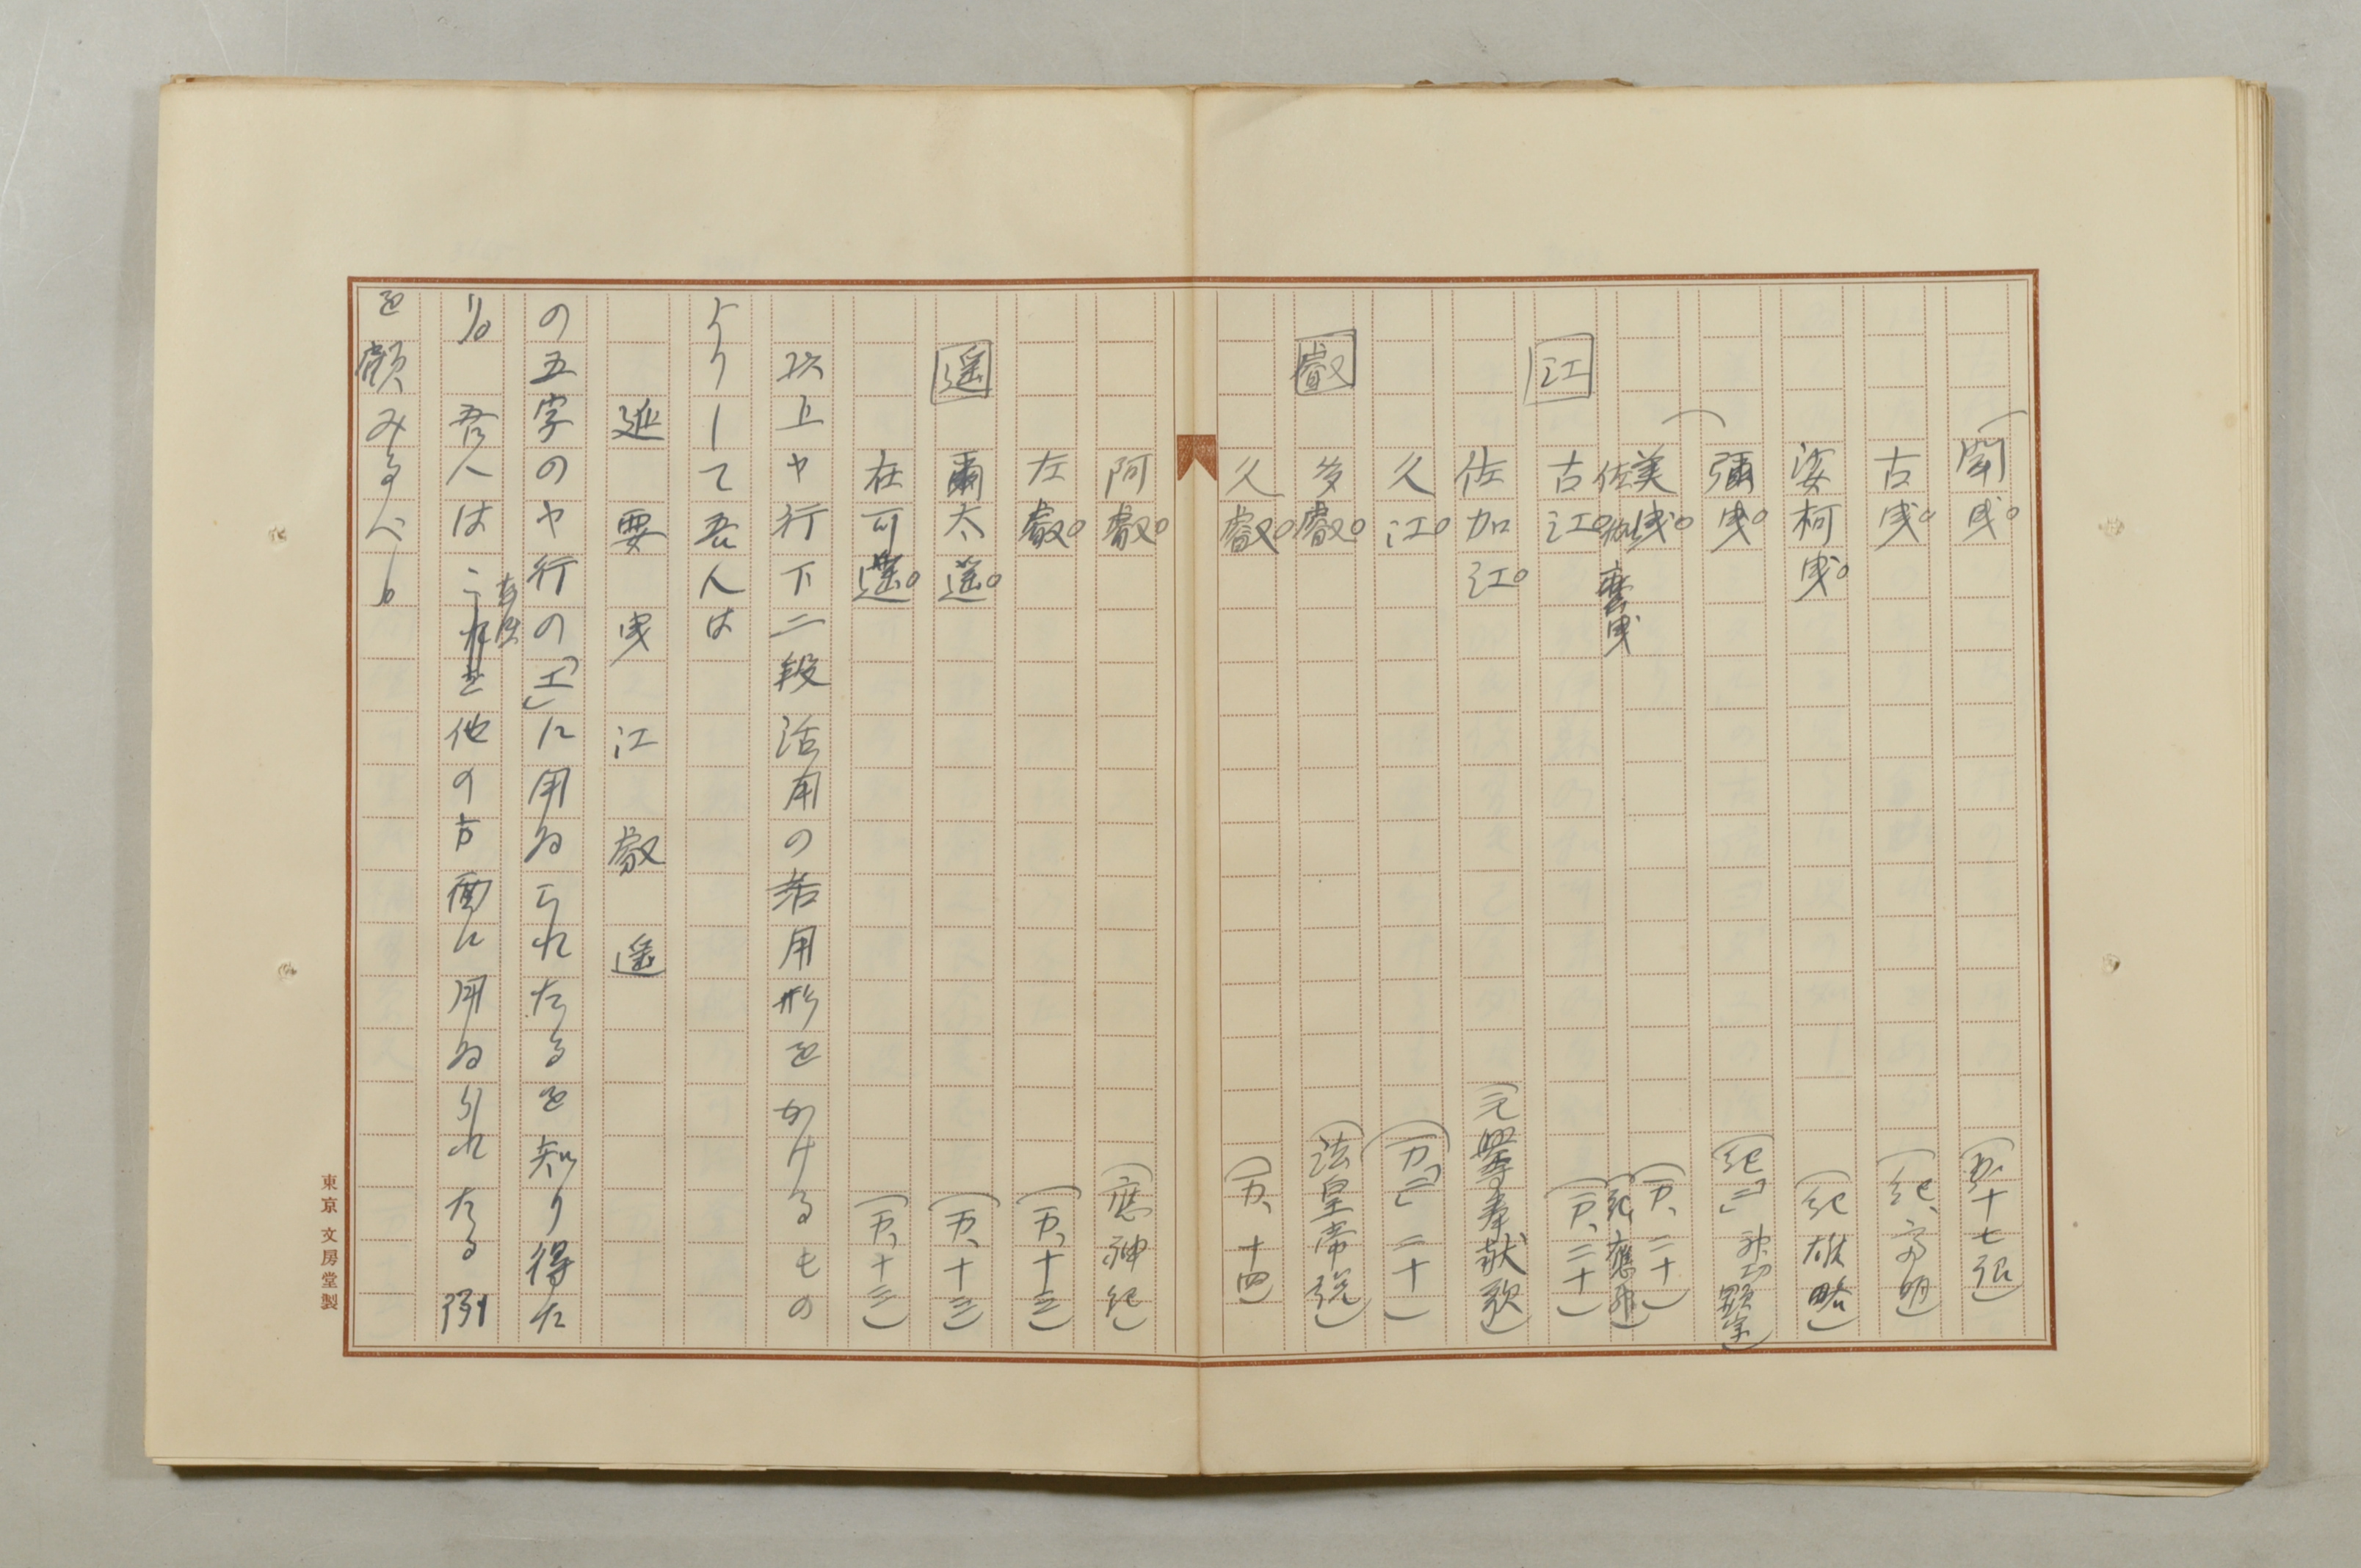 聞曳。
古曳。(紀、斉明)
娑柯曳。(紀雄略)
彌曳。
美曳。(万、二十)
佐
麼曳
江 古江。(万、二十)
佐加江。(元興寺奉献歌)
久江。(万「二」二十)
叡 多叡。(法皇帝説)
久叡。(万、十四)
阿叡。(応神紀)
左叡。(万、十三)
遥 爾太遥。(万、十三)
在可遥。(万、十三)
以上ヤ行下二段活用の若用形をかけるもの
よりして吾人は
延 要 曳 江 叡 遥
の五字のヤ行の「エ」に用ゐられたるを知り得た
り。 吾人は 他の方面に用ゐられたる例
を顧みるべし。
東京 文房堂製